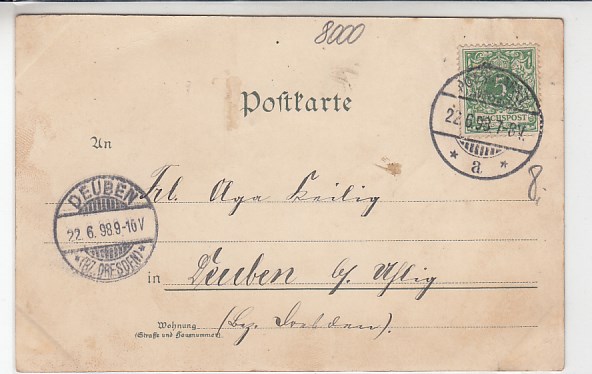 8000
Postkarte
5
REICHSPOST
22.6.98.7-8V.
* a *
An
DEUBEN
22.6.98.9-10V
*(BZ. DRESDEN)*
Frl. Olga Heilig
8,
in Deuben b/
(Bez. Dresden).
Wohnung
(Straße und Hausnummer)